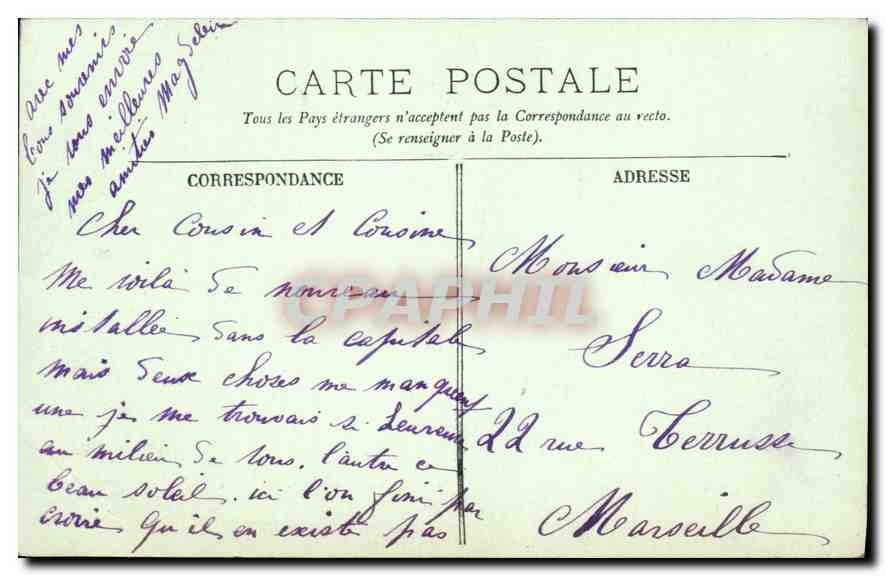 CARTE POSTALE
Tous les Pays étrangers n'acceptent pas la Correspondance au recto.
(Se renseigner à la Poste).
CORRESPONDANCE
Cher Cousin et Cousine
Me voilà de nouveau
installée dans la capitale
mais deux choses me manquent
une je me trouvais si heureuse
au milieu de vous. l'autre ce
beau soleil. ici l'on fini par
croire qu'il en existe pas
avec mes
bons souvenirs
je vous envoie
mes meilleures
amitiés
ADRESSE
Monsieur Madame
Serra
22 rue Terrusse
Marseille
CPAPHIL